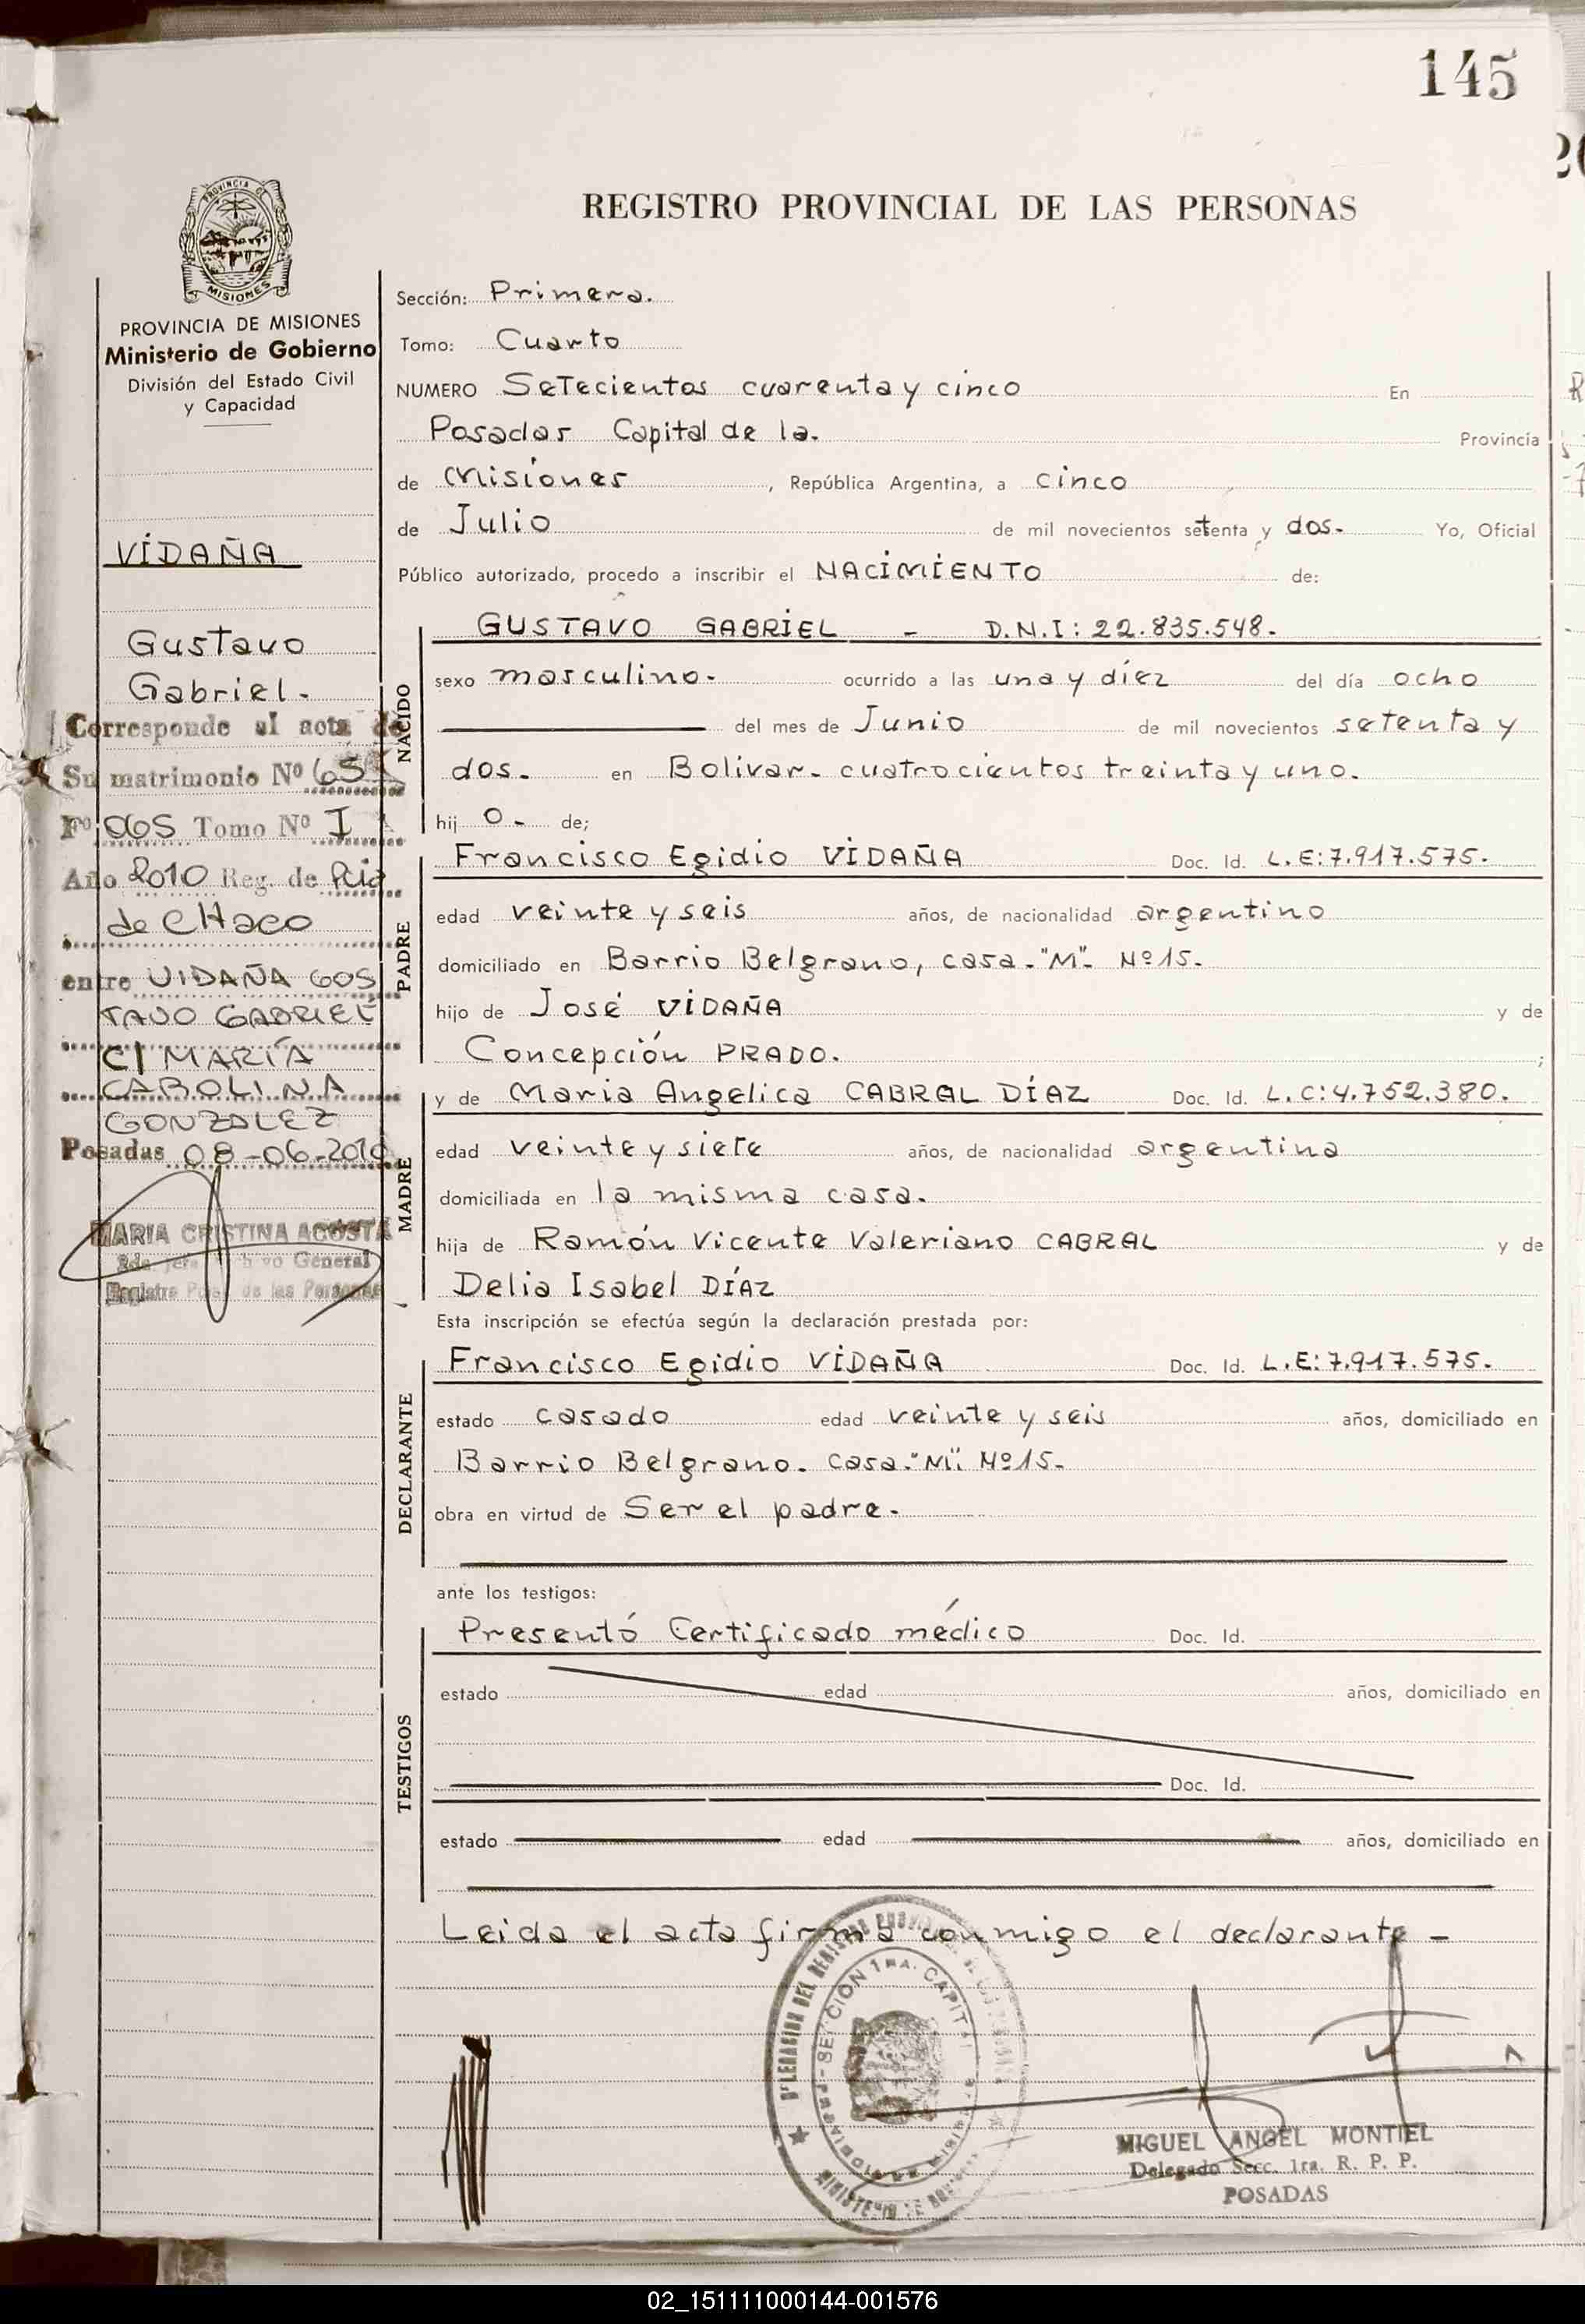 145
REGISTRO PROVINCIAL DE LAS PERSONAS
PROVINCIA DE
MISIONES
PROVINCIA DE MISIONES
Ministerio de Gobierno
División del Estado Civil
y Capacidad
VIDAÑA
Gustavo
Gabriel.
Corresponde al acta de
Su matrimonio Nº 65
Fº 065 Tomo Nº I
Año 2010 Reg. de Pcia
de CHaco
entre VIDAÑA GUS
TAVO GABRIEL
C/ MARÍA
CAROLINA
GONZALEZ
Posadas 08-06-2010
MARIA CRISTINA ACOSTA
General
de las Personas
Sección: Primera.
Tomo: Cuarto
NUMERO Setecientos cuarenta y cinco En
Posadas Capital de la. Provincia
de Misiones, República Argentina, a cinco
de Julio de mil novecientos setenta y dos. Yo, Oficial
Público autorizado, procedo a inscribir el NACIMIENTO de:
NACIDO
GUSTAVO GABRIEL - D.N.I: 22.835.548.
sexo masculino. ocurrido a las una y diez del día ocho
del mes de Junio de mil novecientos setenta y
dos. en Bolivar. cuatrocientos treinta y uno.
hij o. de;
PADRE
Francisco Egidio VIDAÑA Doc. Id. L.E:7.917.575.
edad veinte y seis años, de nacionalidad argentino
domiciliado en Barrio Belgrano, casa."M". Nº15.
hijo de José VIDAÑA y de
Concepción PRADO. ;
MADRE
y de Maria Angelica CABRAL DÍAZ Doc. Id. L.C:4.752.380.
edad veinte y siete años, de nacionalidad argentina
domiciliada en la misma casa.
hija de Ramón Vicente Valeriano CABRAL y de
Delia Isabel DÍAZ
Esta inscripción se efectúa según la declaración prestada por:
DECLARANTE
Francisco Egidio VIDAÑA Doc. Id. L.E:7.917.575.
estado casado edad veinte y seis años, domiciliado en
Barrio Belgrano. Casa."M". Nº15.
obra en virtud de Ser el padre.
ante los testigos:
TESTIGOS
Presentó Certificado médico Doc. Id.
estado edad años, domiciliado en
Doc. Id.
estado edad años, domiciliado en
Leida el acta firma conmigo el declarante -
DELEGACION DEL REGISTRO
SECCION 1RA. CAPITAL
MIGUEL ANGEL MONTIEL
Delegado Secc. 1ra. R. P. P.
POSADAS
02_151111000144-001576